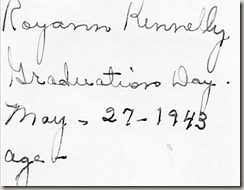 Royann Kennelly
Graduation Day.
May - 27 - 1943
age -